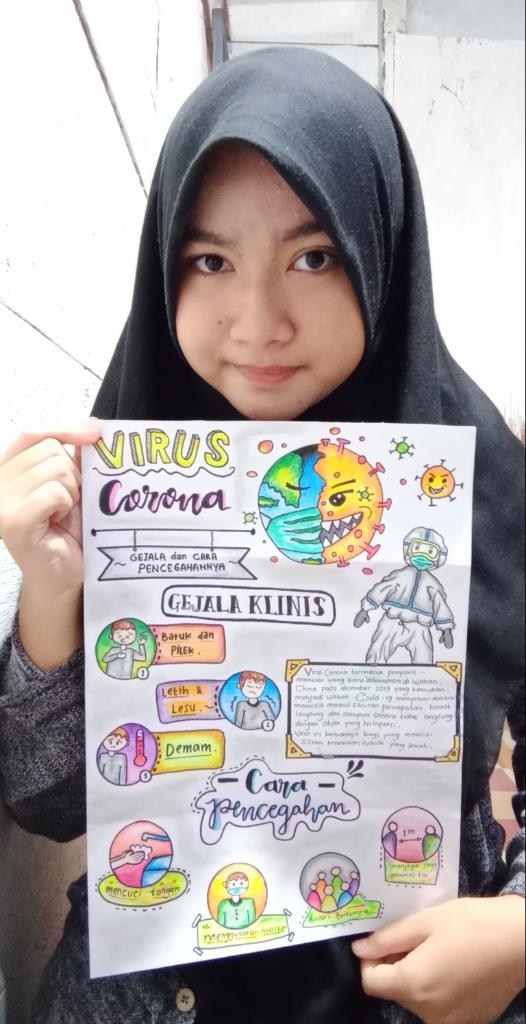 VIRUS
Corona
GEJALA dan CARA
PENCEGAHANNYA
GEJALA KLINIS
Batuk dan
Pilek.
1
Letih &
Lesu.
2
Demam.
3
Virus Corona termasuk penyakit -
menular yang baru ditemukan di Wuhan,
China pada desember 2019 yang kemudian
menjadi wabah. Covid-19 menyebar antara
manusia melalui saluran pernapasan, kontak
langsung dan ataupun secara tidak langsung
dengan objek yang terinfeksi.
Virus ini berbahaya bagi yang memiliki
sistem kekebalan tubuh yang lemah.
- Cara -
pencegahan
mencuci tangan
menggunakan masker
1 m
menjaga jarak